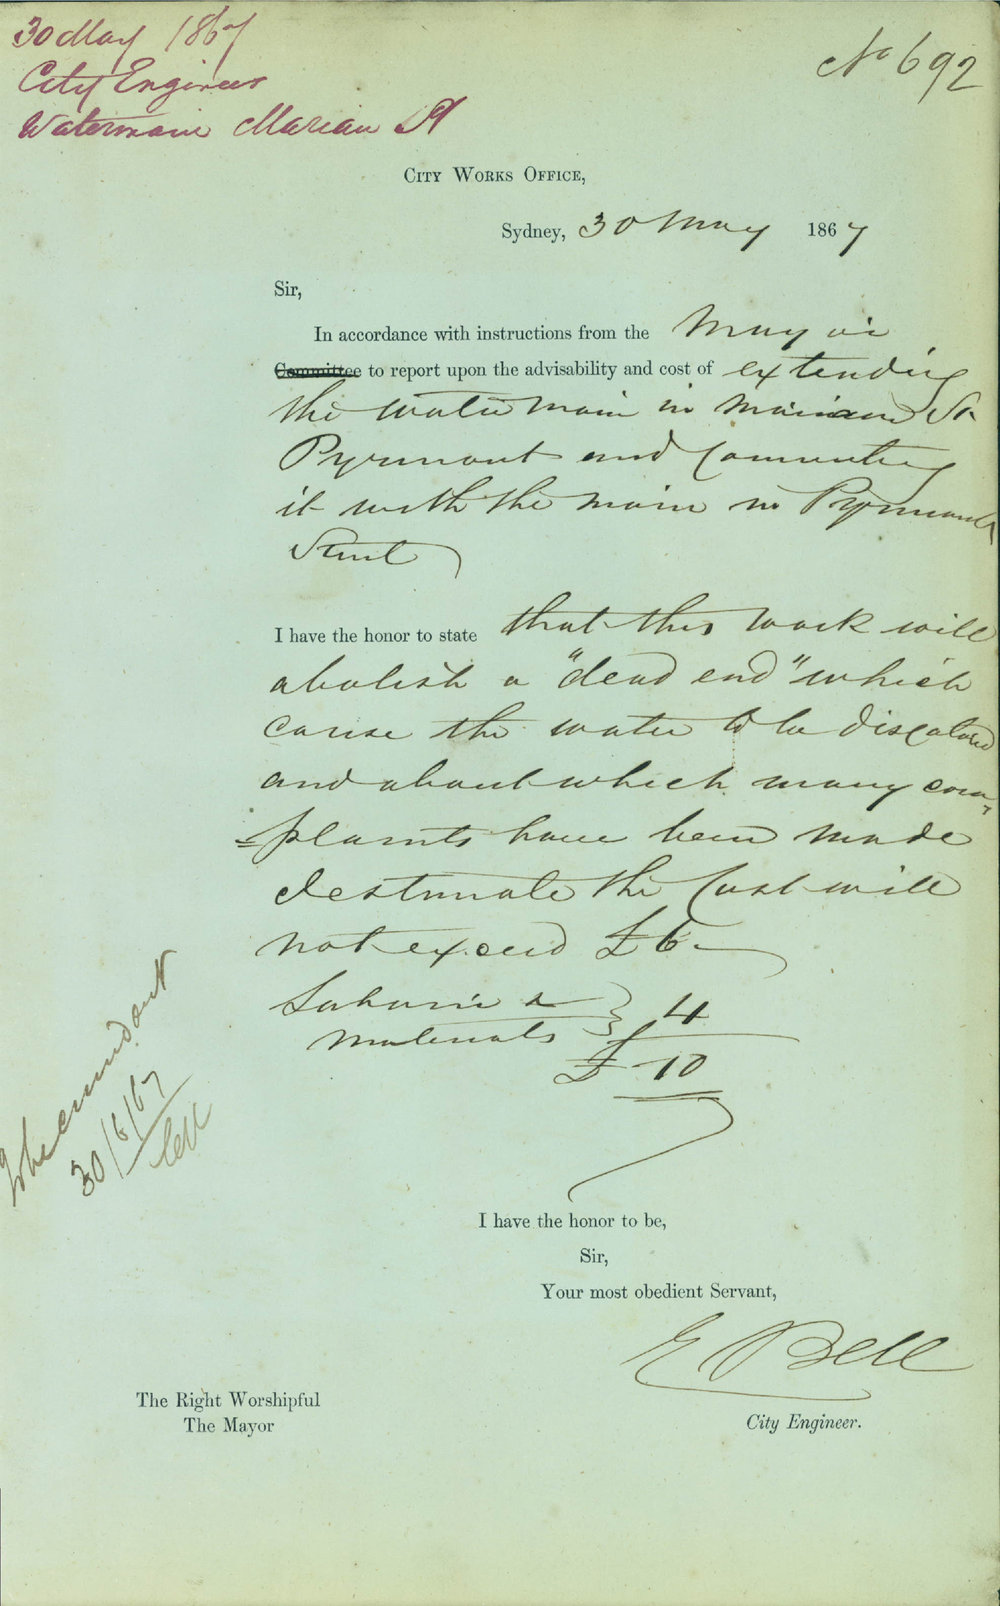 30 May 1867
City Engineer
Watermain Marian St
No 692
CITY WORKS OFFICE,
Sydney, 30 May 1867
Sir,
In accordance with instructions from the Mayor
Committee to report upon the advisability and cost of extending
the water main in St
Pyrmont and Connecting
it with the main in Pyrmont
Street
I have the honor to state that this work will
abolish a "dead end" which
cause the water to be discolored
and about which many com
=plaints have been made
I estimate the Cost will
not exceed £6
Labour &
materials } 4
£10
I have the honor to be,
Sir,
Your most obedient Servant,
E Bell
City Engineer.
The Right Worshipful
The Mayor
30/5/67